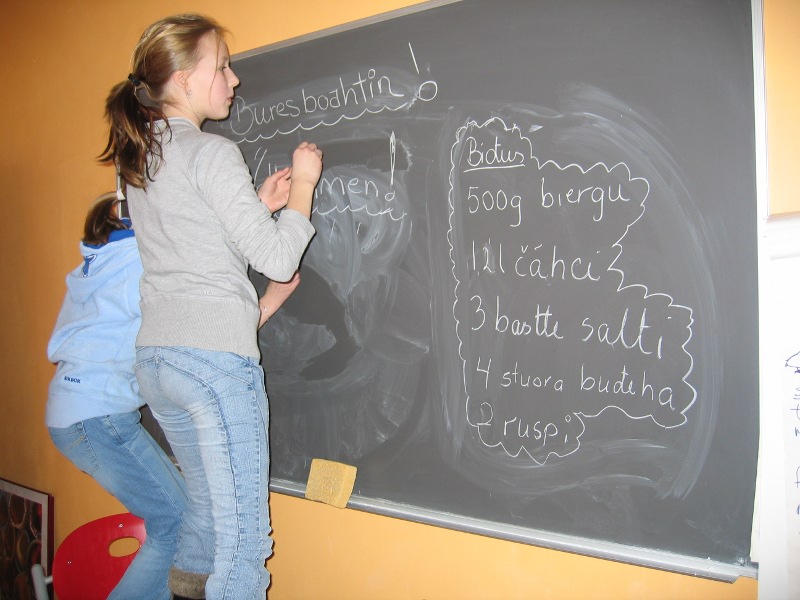 Buresboahtin!
Biđus
500g biergu
1,2l čáhci
3 bastte salti
4 stuora buđeha
2 ruspi